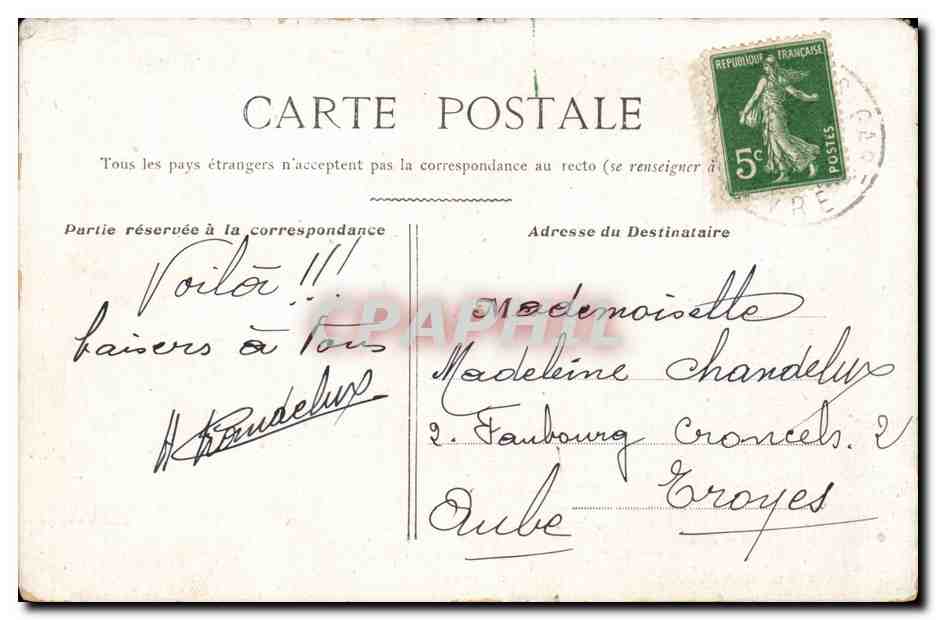 CARTE POSTALE
Tous les pays étrangers n'acceptent pas la correspondance au recto (se renseigner à
REPUBLIQUE FRANÇAISE
5c
POSTES
Partie réservée à la correspondance
Adresse du Destinataire
Voilà !!!
baisers à Tous
H Chandelux
Mademoiselle
Madeleine Chandelux
2. Faubourg Croncels. 2
Troyes
Aube
CPAPHIL